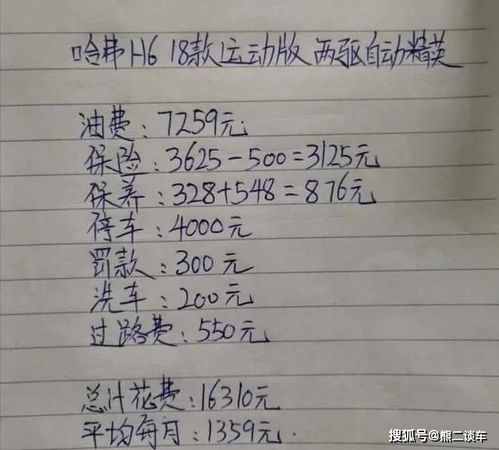 哈弗H6 18款运动版 两驱自动精英
油费:7259元
保险:3625-500=3125元
保养:328+548=876元
停车:4000元
罚款:300元
洗车:200元
过路费:550元
总计花费:16310元
平均每月:1359元.
搜狐号@熊二谈车